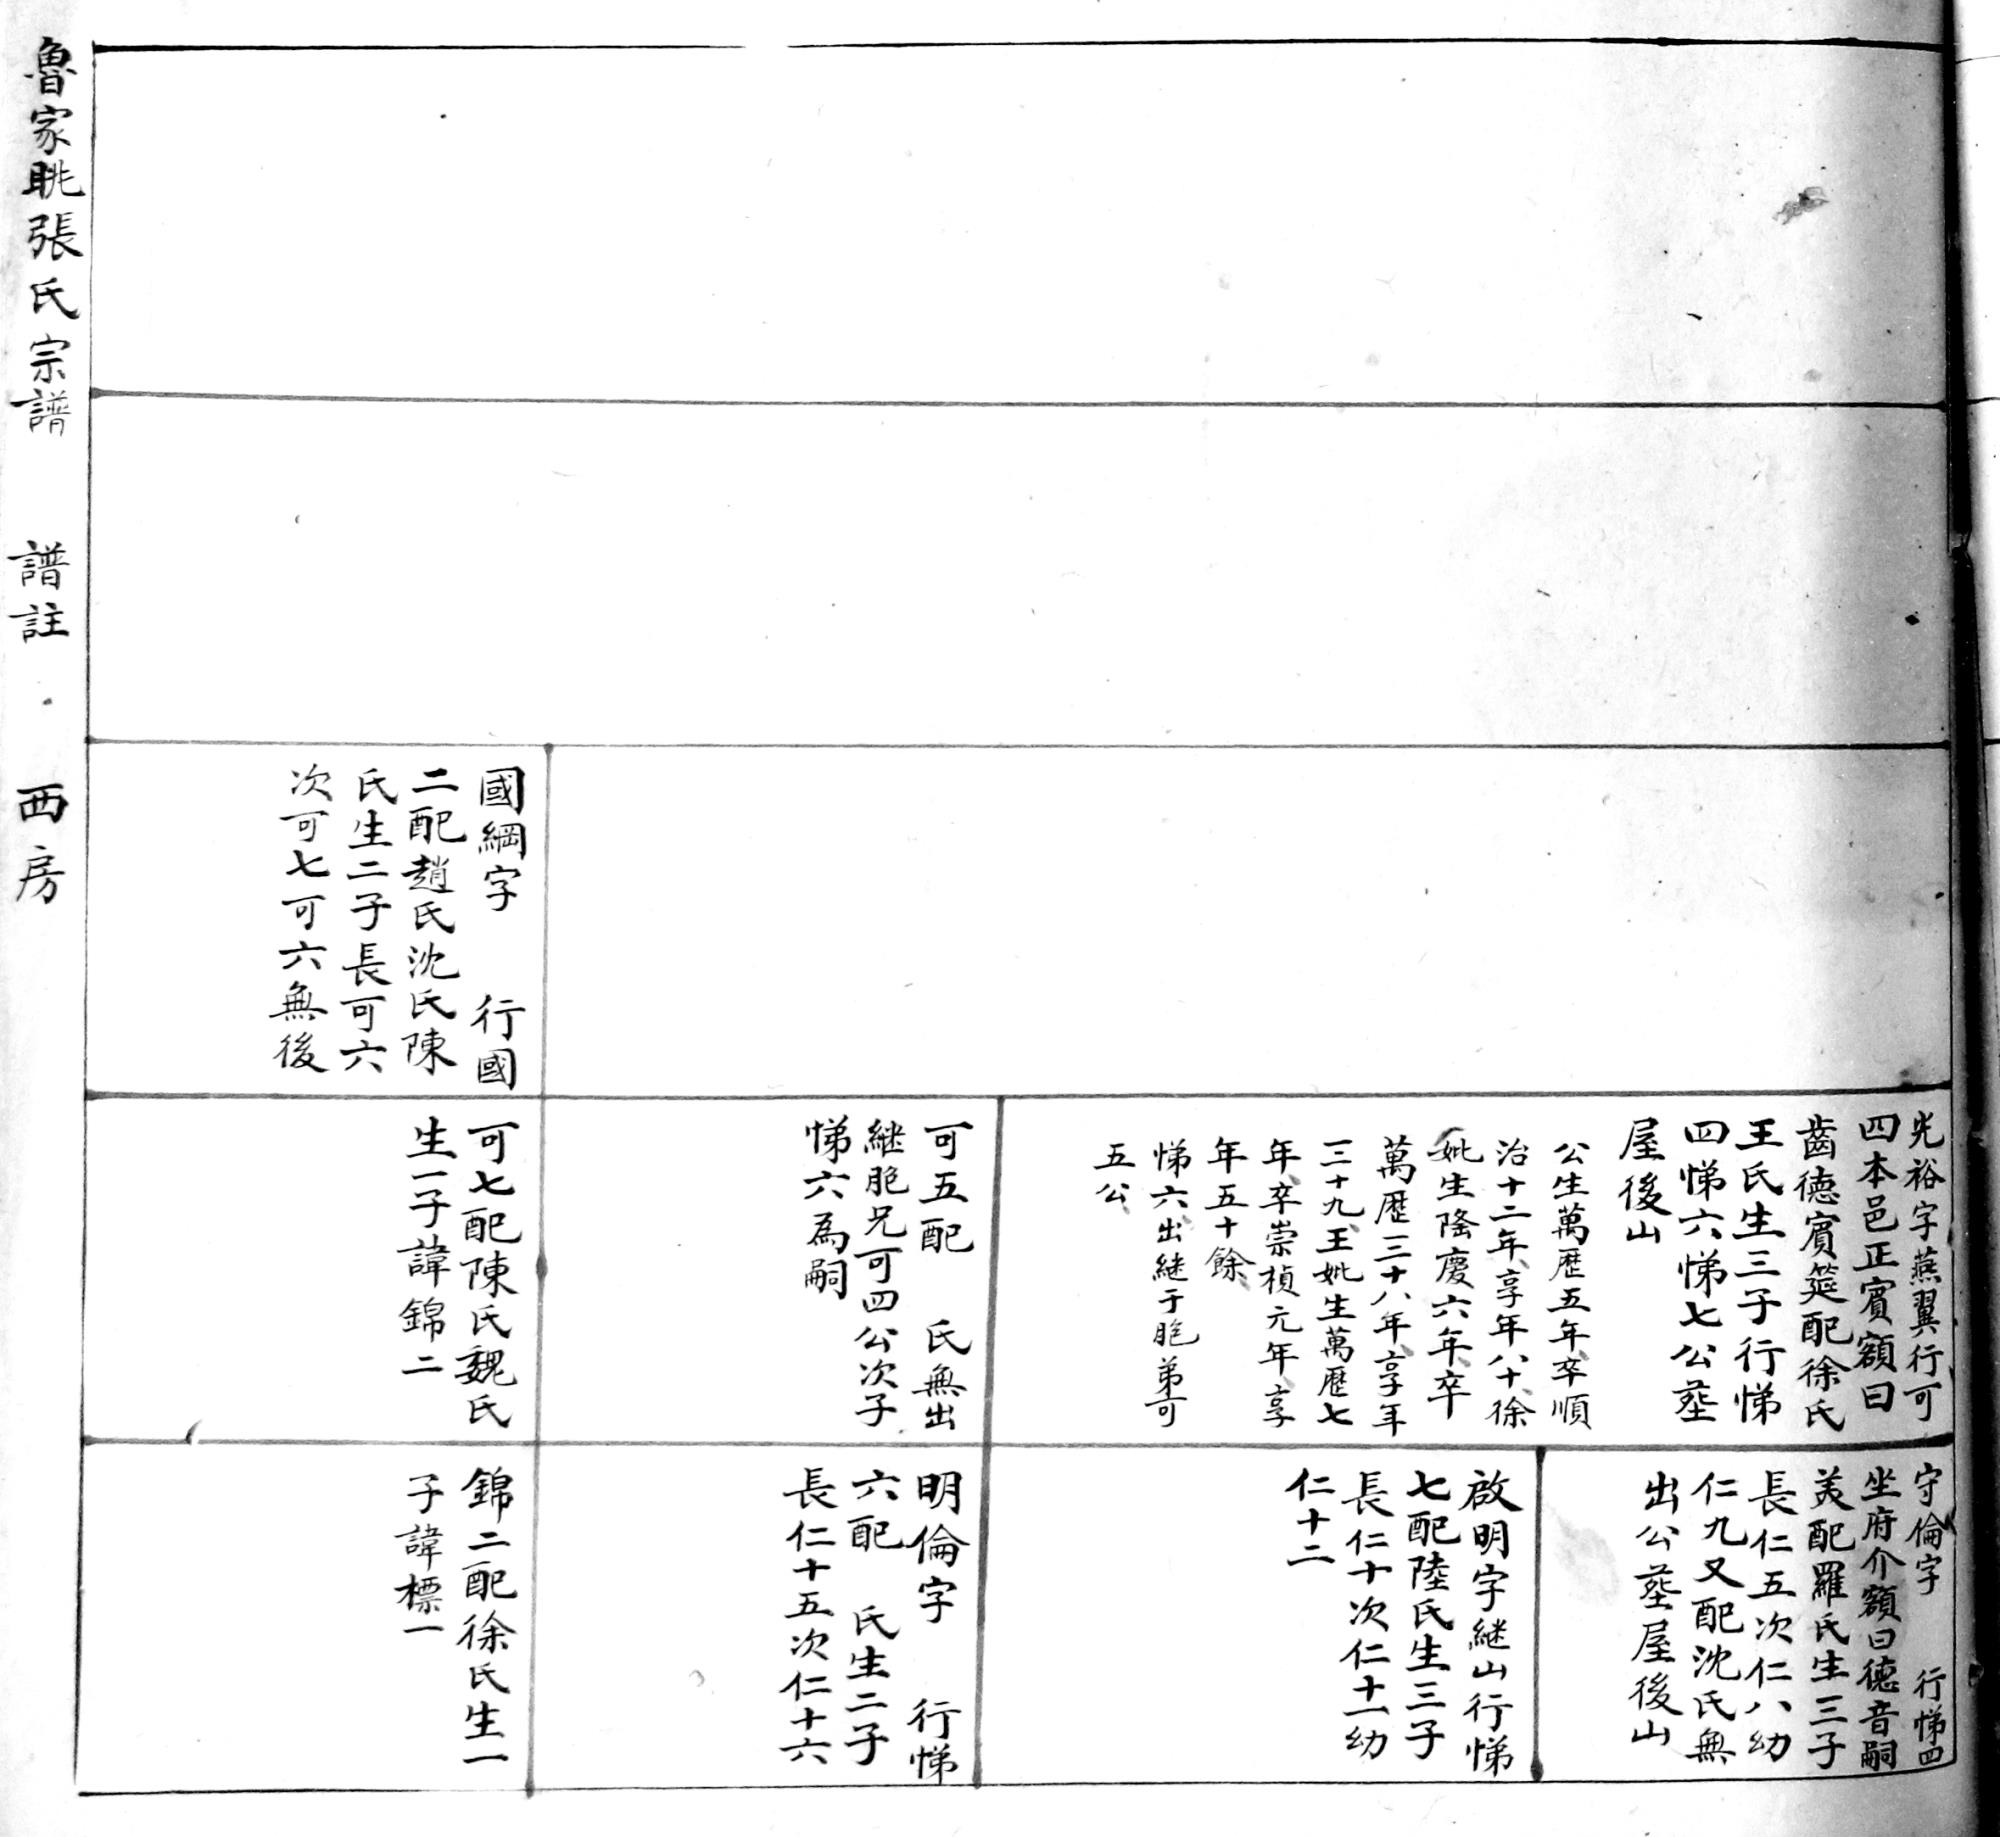 國綱字　　行國
二配趙氏沈氏陳
氏生二子長可六
次可七可六無後
光裕字燕翼行可
四本邑正賓額曰
齒德賓筵配徐氏
王氏生三子行悌
四悌六悌七公塟
屋後山
公生萬歷五年、卒順
治十二年、享年八十、徐
妣生隆慶六年、卒
萬歷三十八年、享年
三十九、王妣生萬歷七
年、卒崇禎元年、享
年五十餘、
悌六出継于胞弟可
五公
可五配　　氏無出
継胞兄可四公次子
悌六為嗣
可七配陳氏魏氏
生一子諱錦二
守倫字　　行悌四
坐府介額曰德音嗣
美配羅氏生三子
長仁五次仁八幼
仁九又配沈氏無
出公塟屋後山
啟明字継山行悌
七配陸氏生三子
長仁十次仁十一幼
仁十二
明倫字　　行悌
六配　　氏生二子
長仁十五次仁十六
錦二配徐氏生一
子諱標一
魯家眺張氏宗譜　　譜註　　西房